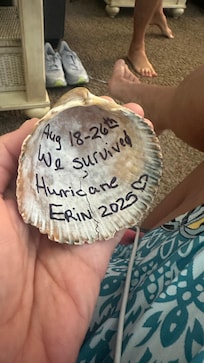 Aug 18-26th
We survived
Hurricane
ERIN 2025 ♡